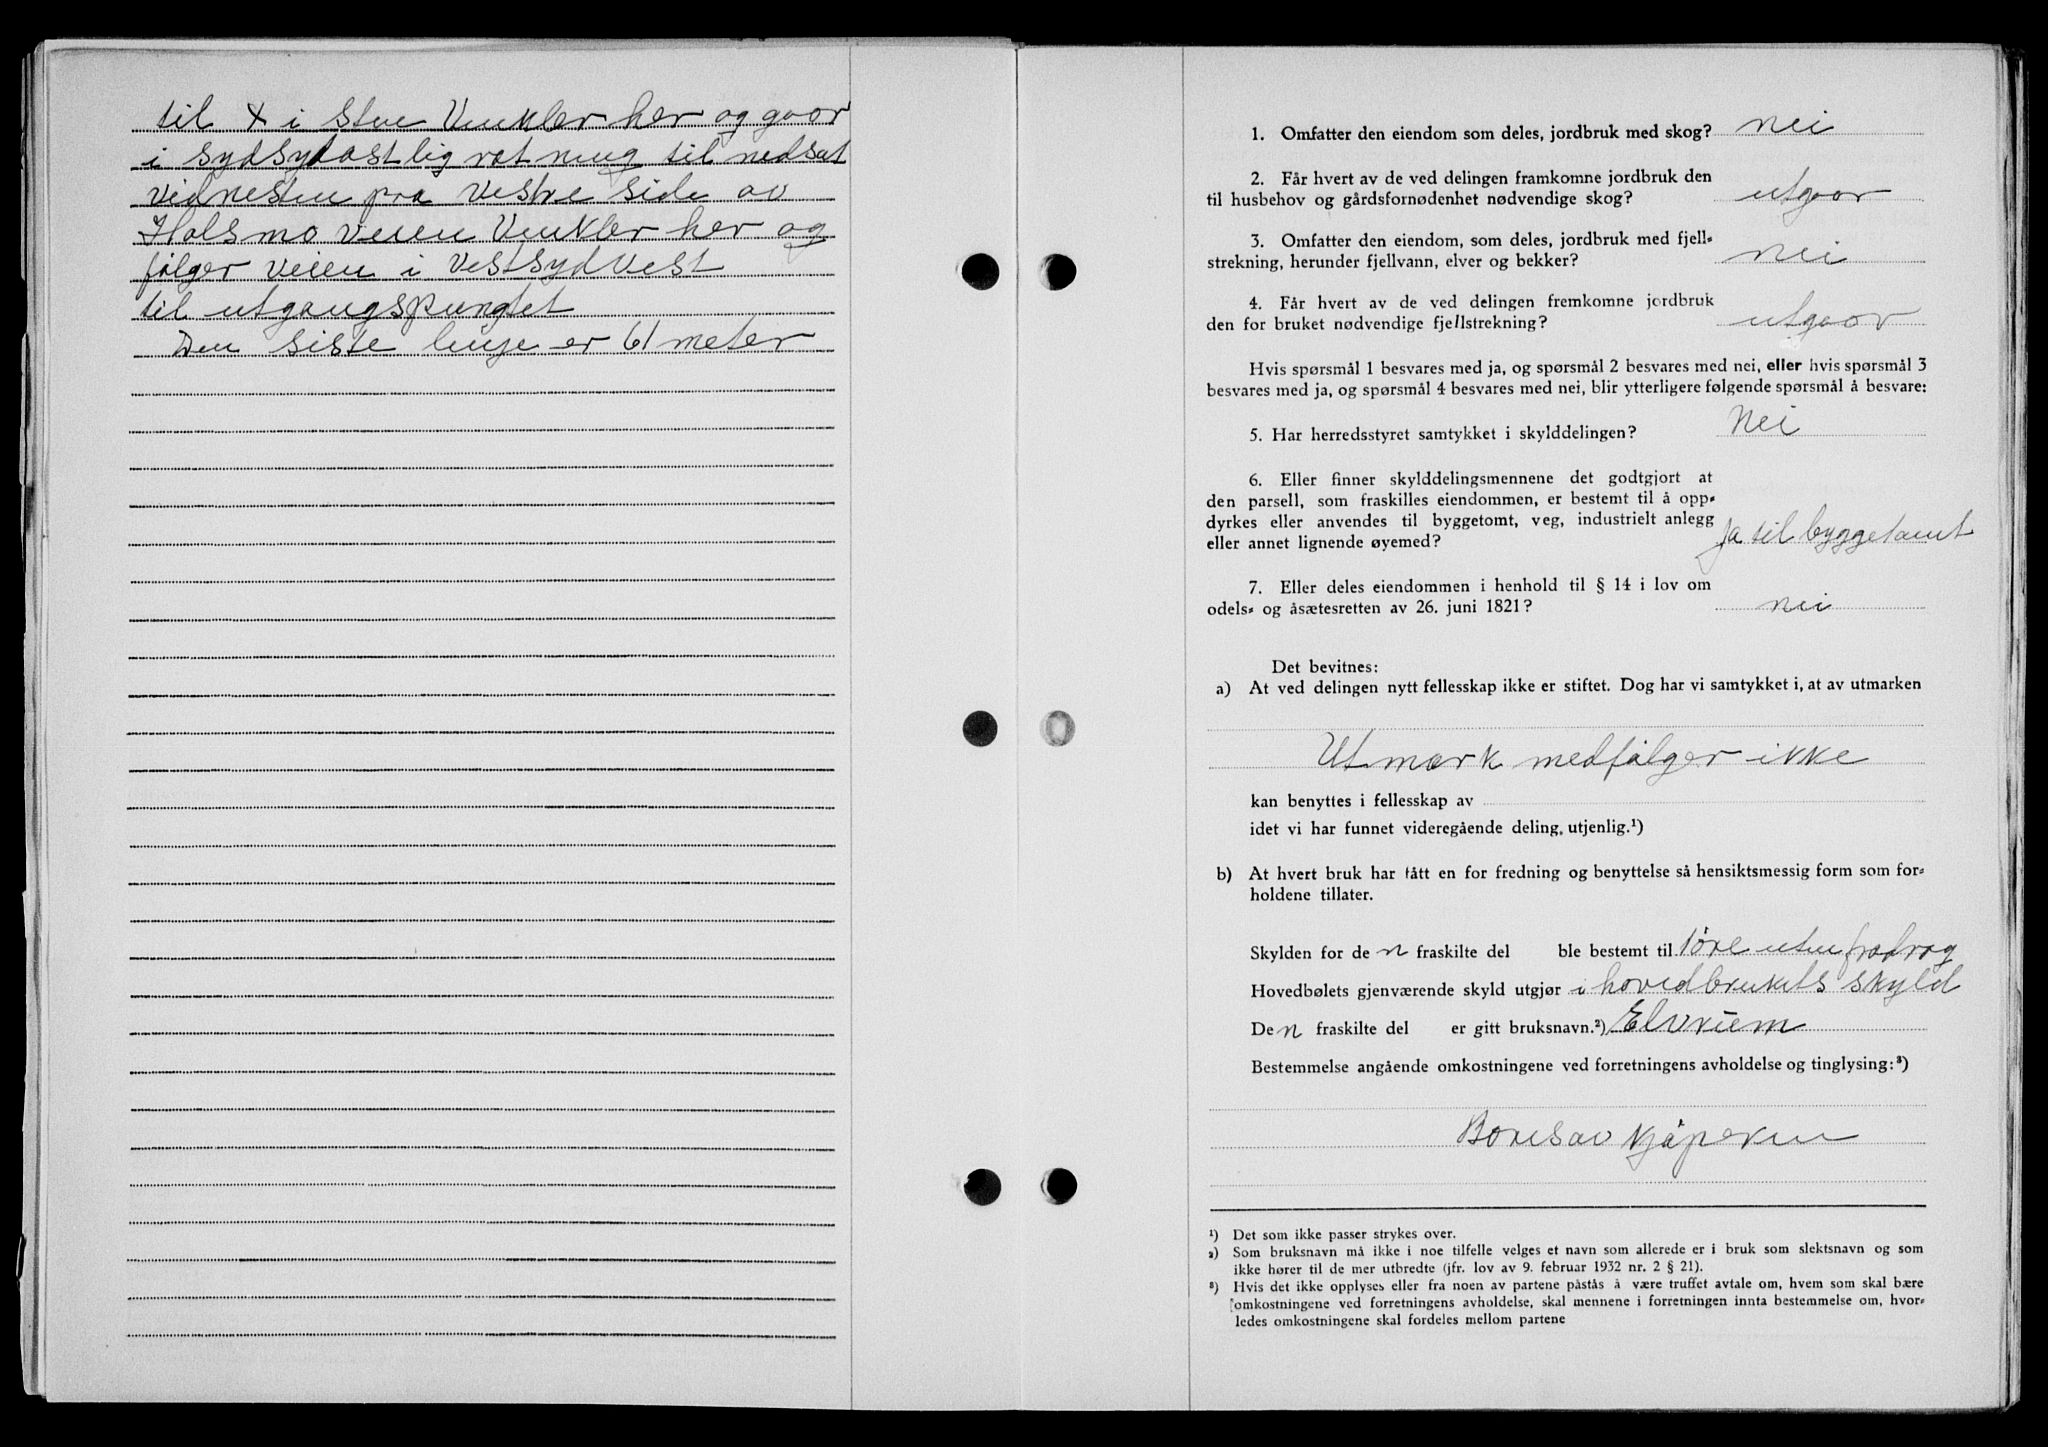 til X i Sten Vinkler her og gaar
i sydsydostlig retning til nedsat
vidnesten pra vestre side av
Holsmo veien Vinkler her og
følger veien i Vestsydvest
til utgangspungtet
Den siste linje er 61 meter
1. Omfatter den eiendom som deles, jordbruk med skog? nei
2. Får hvert av de ved delingen framkomne jordbruk den
til husbehov og gårdsfornødenhet nødvendige skog? utgaar
3. Omfatter den eiendom, som deles, jordbruk med fjell-
strekning, herunder fjellvann, elver og bekker? nei
4. Får hvert av de ved delingen fremkomne jordbruk
den for bruket nødvendige fjellstrekning? utgaar
Hvis spørsmål 1 besvares med ja, og spørsmål 2 besvares med nei, eller hvis spørsmål 3
besvares med ja, og spørsmål 4 besvares med nei, blir ytterligere følgende spørsmål å besvare:
5. Har herredsstyret samtykket i skylddelingen? Nei
6. Eller finner skylddelingsmennene det godtgjort at
den parsell, som fraskilles eiendommen, er bestemt til å opp-
dyrkes eller anvendes til byggetomt, veg, industrielt anlegg
eller annet lignende øyemed? Ja til byggetomt
7. Eller deles eiendommen i henhold til § 14 i lov om
odels- og åsætesretten av 26. juni 1821? nei
Det bevitnes:
a) At ved delingen nytt fellesskap ikke er stiftet. Dog har vi samtykket i, at av utmarken
Utmark medfølger ikke
kan benyttes i fellesskap av
idet vi har funnet videregående deling utjenlig.¹)
b) At hvert bruk har fått en for fredning og benyttelse så hensiktsmessig form som for-
holdene tillater.
Skylden for de n fraskilte del ble bestemt til 1 øre uten fradrag
Hovedbølets gjenværende skyld utgjør i hovedbrukets skyld
De n fraskilte del er gitt bruksnavn.²) Elvheim
Bestemmelse angående omkostningene ved forretningens avholdelse og tinglysing:³)
Bæres av kjøperen
¹) Det som ikke passer strykes over.
²) Som bruksnavn må ikke i noe tilfelle velges et navn som allerede er i bruk som slektsnavn og som
ikke hører til de mer utbredte (jfr. lov av 9. februar 1932 nr. 2 § 21).
³) Hvis det ikke opplyses eller fra noen av partene påstås å være truffet avtale om, hvem som skal bære
omkostningene ved forretningens avholdelse, skal mennene i forretningen innta bestemmelse om, hvor-
ledes omkostningene skal fordeles mellom partene